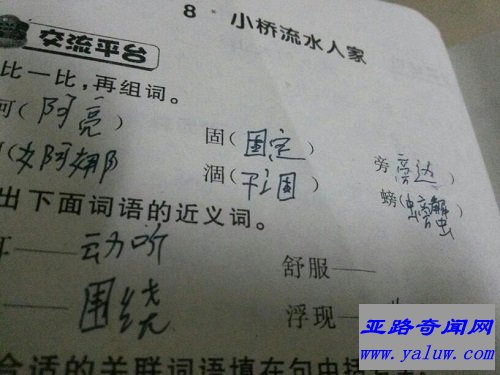 8 小桥流水人家
交流平台
比一比,再组词。
(阿亮) 固(固定) 旁
(婀娜) 涸(干涸) 螃(螃蟹)
出下面词语的近义词。
——动听 舒服——
——围绕 浮现——
合适的关联词语填在句中括
亚路奇闻网
www.yaluw.com